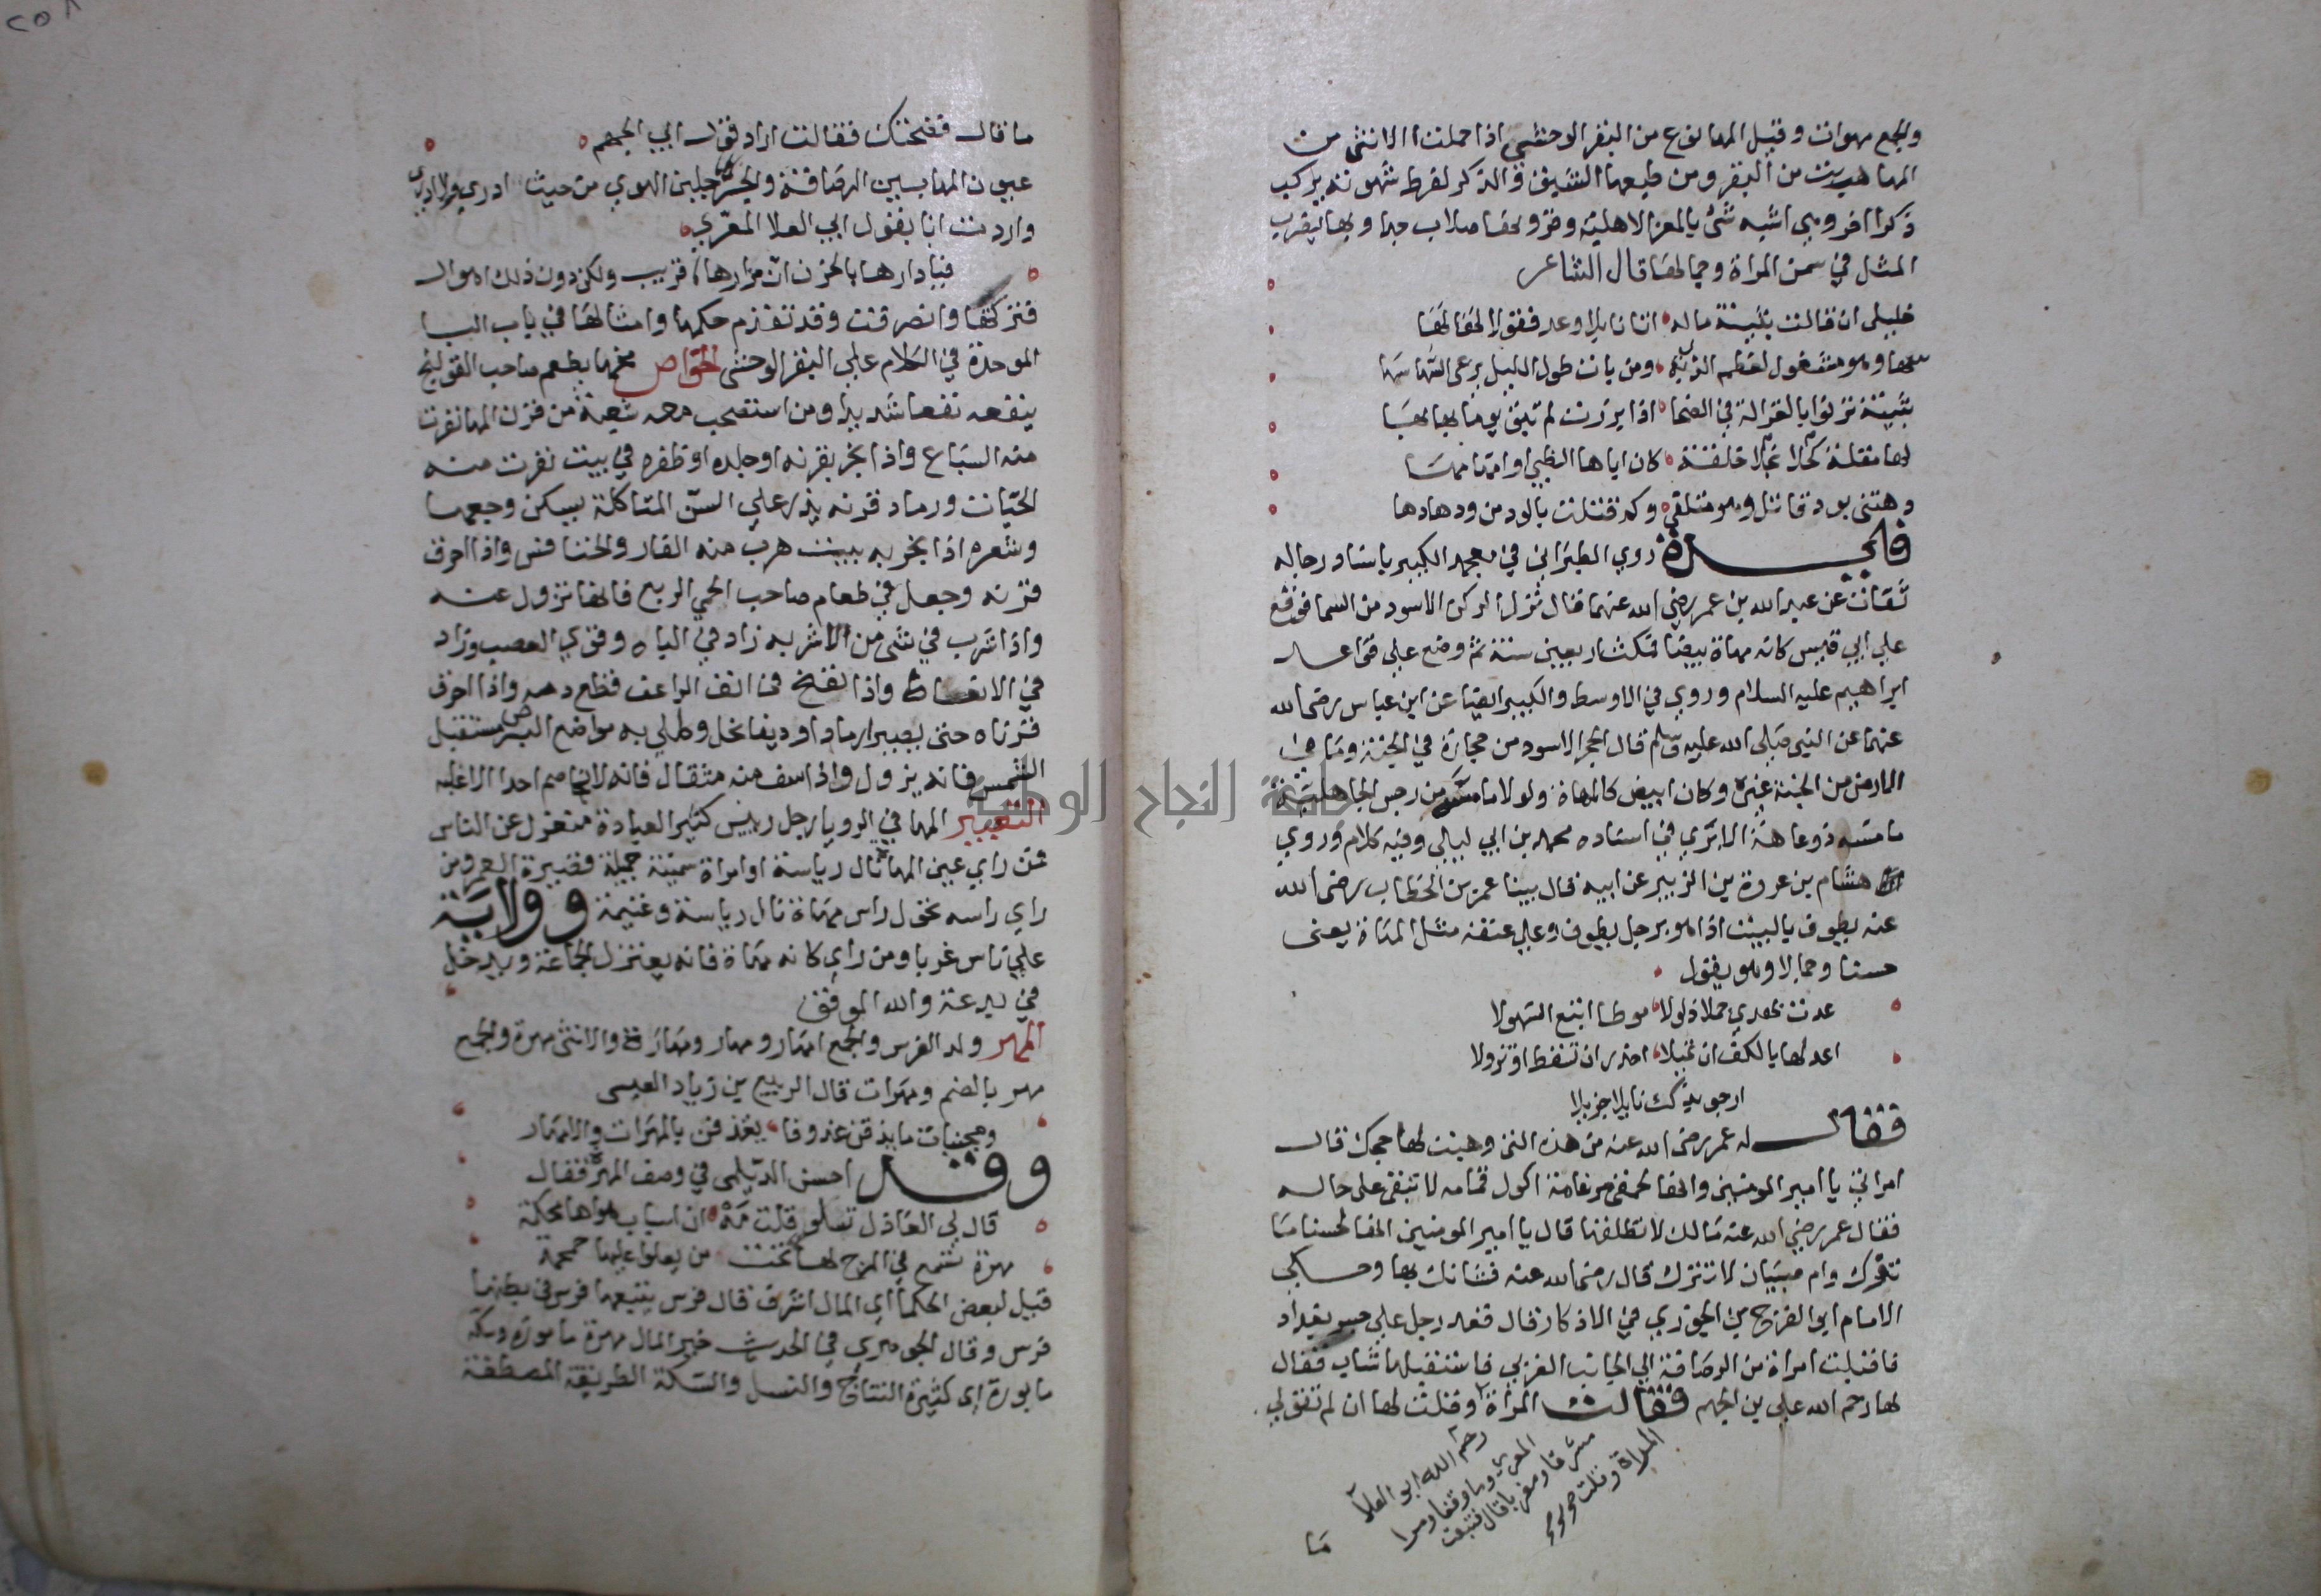 والجمع مهوات وقيل المها نوع من البقر الوحشي اذا حملت الانثى من
المها هربت من البقر ومن طبعها الشبق والذكر لفرط شهوته يركب
ذكرا اخر وهي اشبه شي بالمعز الاهلية وقرونها صلاب جدا وبها يضرب
المثل في سمن المراة وجمالها قال الشاعر
خليلي ان قالت بثينة ماله اتانا بلا وعد فقولا لها لها
سها وهو مشغول لعظم الذي به ومن بات طول الليل يرعى السها سها
بثينة تزري بالغزالة في الضحا اذا برزت لم تبق يوما بها بها
لها مقلة كحلا نجلا خلقة كان اباها الظبي او امها مها
دهتني بود قاتل وهو متلفي وكم قتلت بالود من ودها دها
فايدة روي الطبراني في معجمه الكبير باسناد رجاله
ثقات عن عبد الله بن عمر رضي الله عنهما قال نزل الركن الاسود من السما فوضع
علي ابي قبيس كانه مهاة بيضا فمكث اربعين سنة ثم وضع علي قواعد
ابراهيم عليه السلام وروي في الاوسط والكبير ايضا عن ابن عباس رضي الله
عنهما عن النبي صلى الله عليه وسلم قال الحجر الاسود من حجارة في الجنة وما في
الارض من الجنة غيره وكان ابيض كالمهاة ولولا ما مسه من رجس الجاهلية
ما مسه ذو عاهة الا بري في اسناده محمد بن ابي ليلي وفيه كلام وروي
هشام بن عروة بن الزبير عن ابيه قال بينا عمر بن الخطاب رضي الله
عنه يطوف بالبيت اذا هو برجل يطوف وعلي عنقه مثل المهاة يعني
حسنا وجمالا وهو يقول
عدت لهذي جملا ذلولا موطا اتبع السهولا
اعدلها بالكف ان تميلا احذر ان تسقط او تزولا
ارجو بذلك نايلا جزيلا
فقال له عمر رضي الله عنه من هذه التي وهبت لها حجك قال
امراتي يا امير المومنين وانها لحمقى مرغامة اكول قمامه لا تبقي على حاله
فقال عمر رضي الله عنه مالك لا تطلقها قال يا امير المومنين انها لحسنا ما
تفرك وام صبيان لا تترك قال رضي الله عنه فشانك بها وحكي
الامام ابو الفرج بن الجوزي في الاذكار قال قعد رجل علي جسر بغداد
فاقبلت امراة من الرصافة الي الجانب الغربي فاستقبلها شاب فقال
لها رحم الله علي بن الجهم فقالت المراة وقلت لها ان لم تقولي
رحم الله ابو العلا
المعري وما وقفا ومرا
مشرقا ومغربا قال فتبعت
المراة وقلت
ما
ما قال فضحتك فقالت اراد قول ابي الجهم
عيون المها بين الرصافة والجسر جلبن الهوي من حيث ادري ولا ادري
واردت انا بقول ابي العلا المعري
فيا دارها بالحزن ان مزارها قريب ولكن دون ذلك اهوال
فتركتها وانصرفت وقد تقدم حكمها وامثالها في باب البا
الموحدة في الكلام علي البقر الوحشي الخواص مخها يطعم صاحب القولنج
ينفعه نفعا شديدا ومن استصحب معه شعبة من قرن المها نفرت
منه السباع واذا بخر بقرنه او جلده او ظفره في بيت نفرت منه
الحيات ورماد قرنه يذر علي السن المتاكلة يسكن وجعها
وشعره اذا بخر به بيت هرب منه الفار والخنافس واذا احرق
قرنه وجعل في طعام صاحب الحمي الربع فانها تزول عنه
واذا شرب في شي من الاشربه زاد في الباه وقوي العصب وزاد
في الانعاظ واذا نفخ في انف الراعف قطع دمه واذا احرق
قرناه حتى يصيرا رمادا وديفا بخل وطلي به مواضع البرص مستقبل
الشمس فانه يزول واذا سف منه مثقال فانه لا يخاصم احدا الا غلبه
التعبير المها في الرويا رجل رييس كثير العبادة معتزل عن الناس
فمن راي عين المها نال رياسة او امراة سمينة جميلة قصيرة العمر ومن
راي راسه تحول راس مهاة نال رياسة وغنيمة وولاية
علي ناس غربا ومن راي كانه مهاة فانه يعتزل الجماعة ويدخل
في بدعة والله الموفق
المهر ولد الفرس والجمع امهار ومهار ومهارة والانثى مهرة والجمع
مهر بالضم ومهرات قال الربيع بن زياد العبسي
ومجنبات ما يذقن عذوفا يقذفن بالمهرات والامهار
وقد احسن الديلمي في وصف المهرة فقال
قال لي العاذل تسلو قلت مه ان اسباب هواها محكمة
مهرة تشمع في المرج لها تحت من يعلوا عليها حمحمة
قيل لبعض الحكما اي المال اشرف قال فرس يتبعها فرس في بطنها
فرس وقال الجوهري في الحديث خير المال مهرة مامورة وسكة
مابورة اي كثيرة النتاج والنسل والسكة الطريقة المصطفة
٢٥٨
جامعة النجاح الوطنية